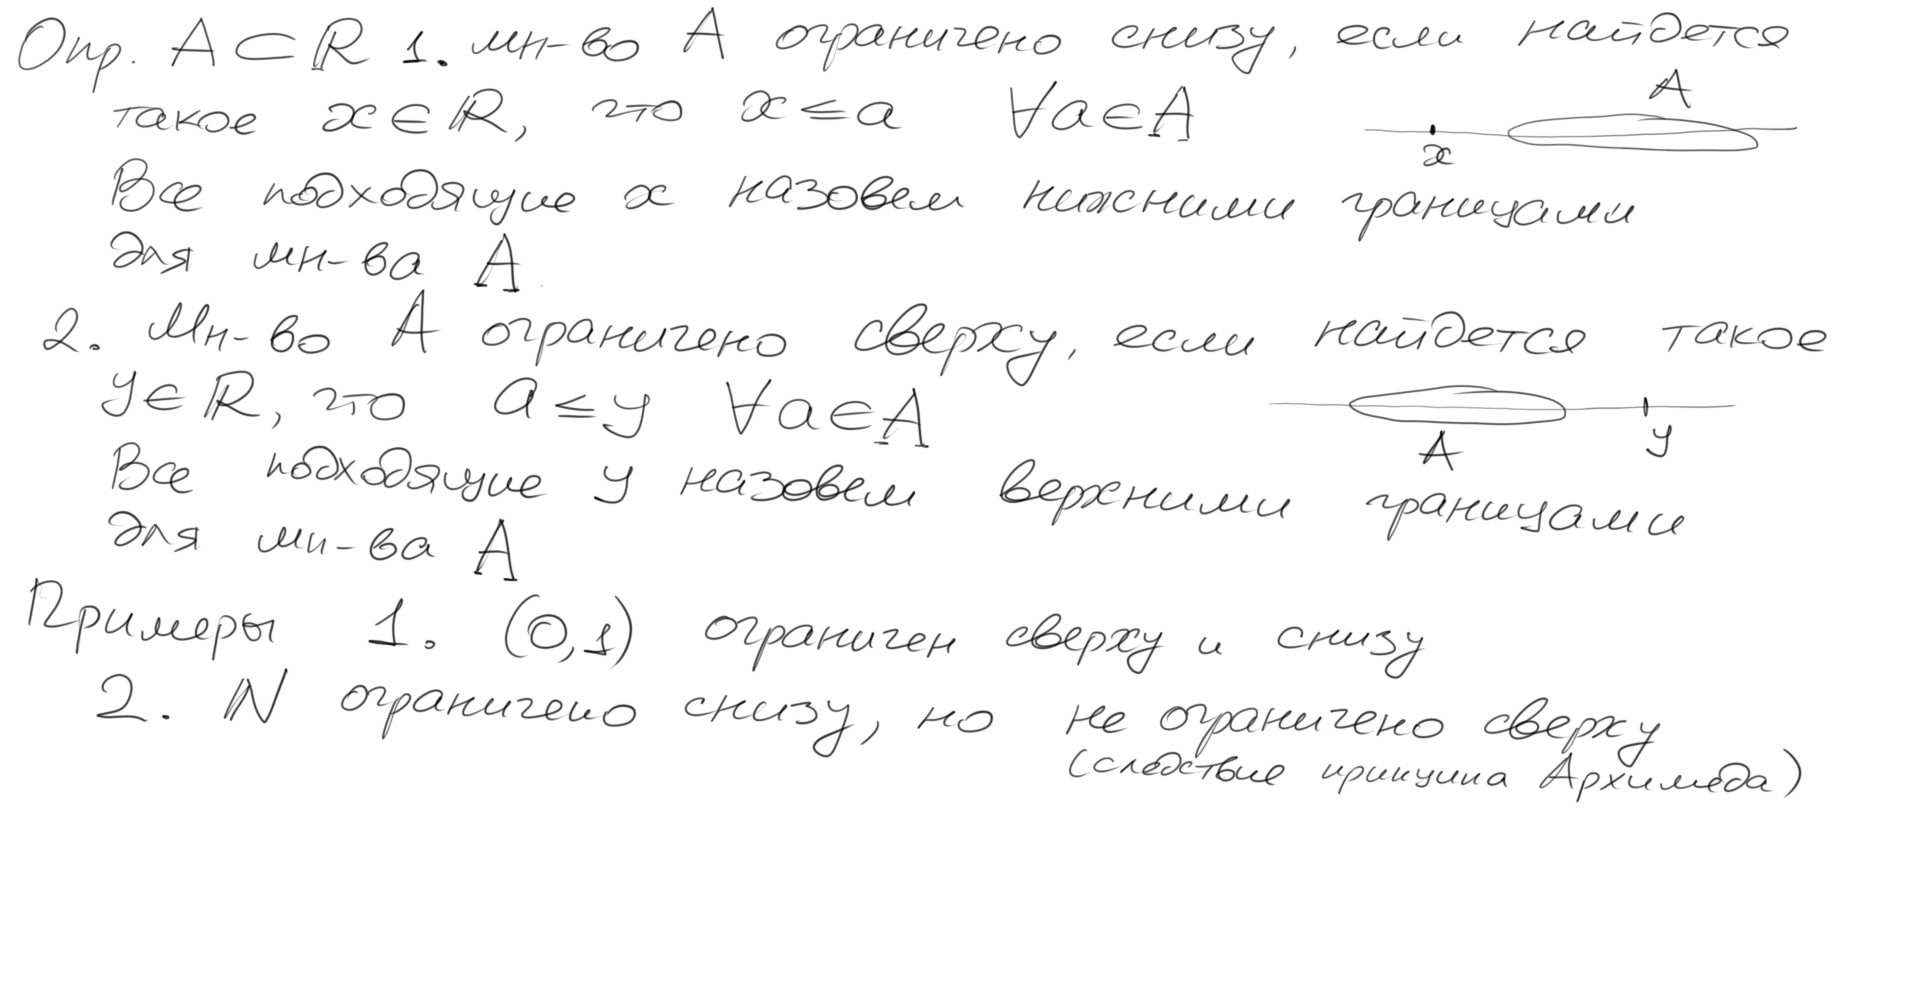 Опр. A⊂ℝ 1. мн-во A ограничено снизу, если найдется
такое x∈ℝ, что x≤a ∀a∈A
A
x
Все подходящие x назовем нижними границами
для мн-ва A
2. Мн-во A ограничено сверху, если найдется такое
y∈ℝ, что a≤y ∀a∈A
A y
Все подходящие y назовем верхними границами
для мн-ва A
Примеры 1. (0,1) ограничен сверху и снизу
2. ℕ ограничено снизу, но не ограничено сверху
(следствие принципа Архимеда)